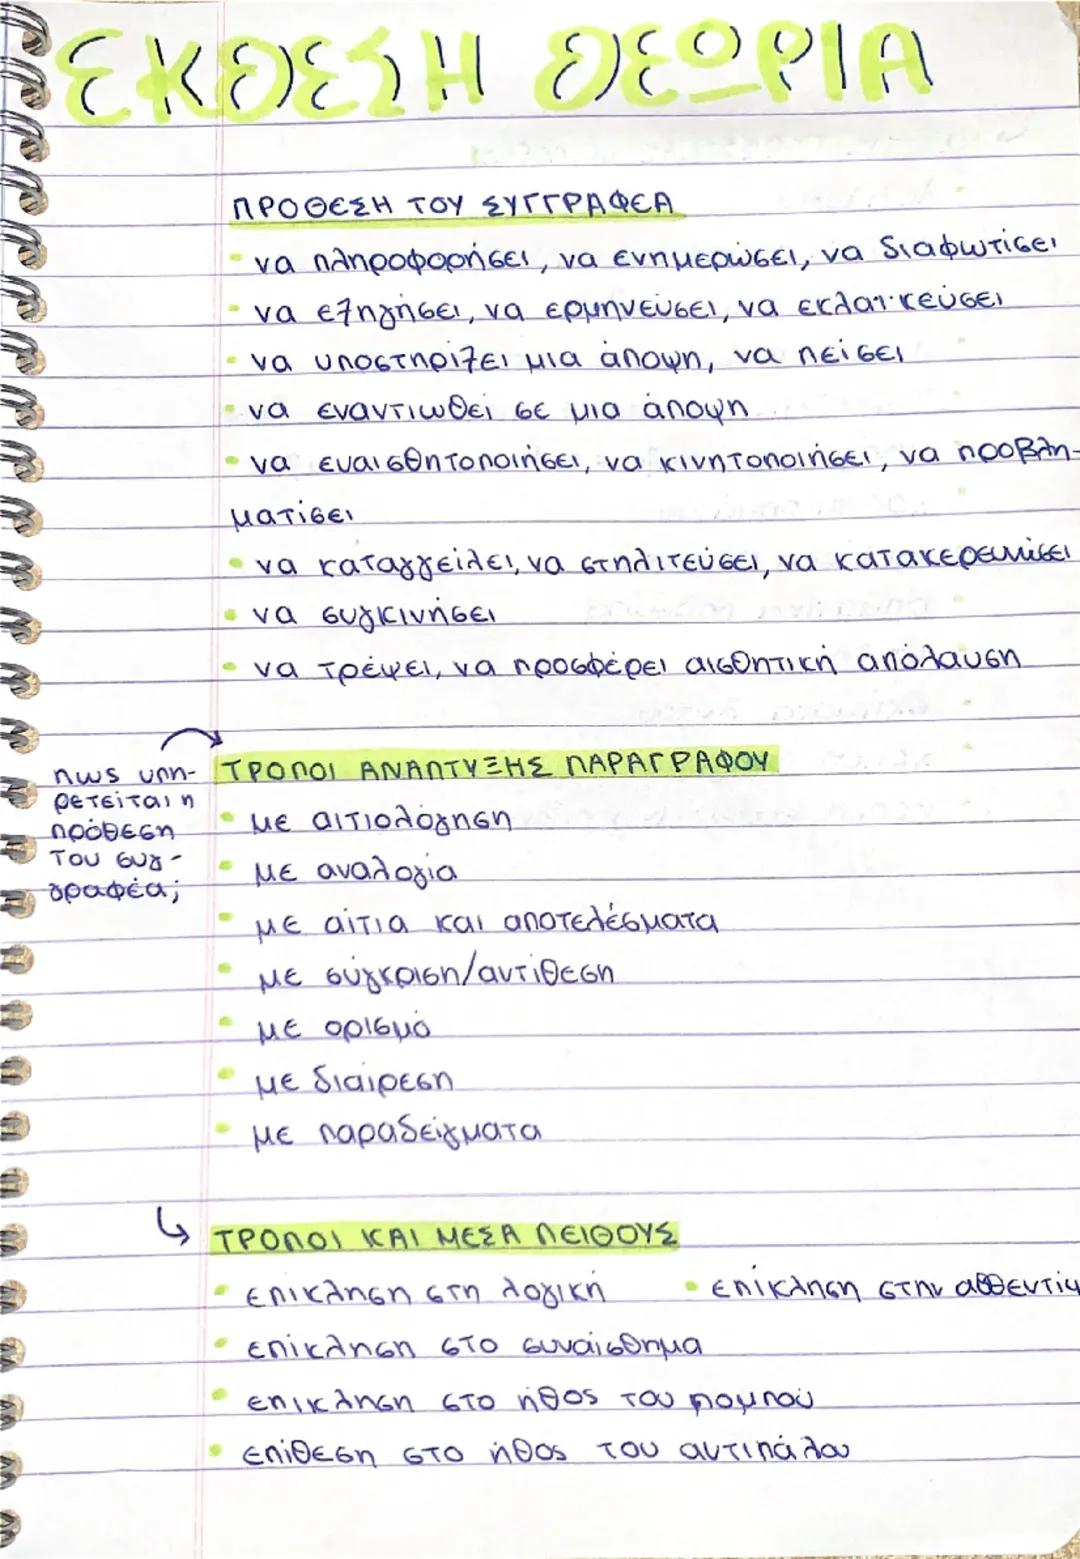 ΕΚΘΕΣΗ ΘΕΩΡΙΑ
ΠΡΟΘΕΣΗ ΤΟΥ ΣΥΓΓΡΑΦΕΑ
• να πληροφορήσει, να ενημερώσει, να διαφωτίσει
• να εξηγήσει, να ερμηνεύσει, να εκλαϊκεύσει
• να υποστηρίξει μια άποψη, να πείσει
• να εναντιωθεί σε μια άποψη
• να ευαισθητοποιήσει, να κινητοποιήσει, να προβλη-
ματίσει
• να καταγγείλει, να στηλιτεύσει, να
• να συγκινήσει
• να τρέψει, να προσφέρει αισθητική απόλαυση
πως υπη-
ρετείται η
πρόθεση
του συγ-
γραφέα;
ΤΡΟΠΟΙ ΑΝΑΠΤΥΞΗΣ ΠΑΡΑΓΡΑΦΟΥ
• με αιτιολόγηση
• με αναλογία
• με αίτια και αποτελέσματα
• με σύγκριση/αντίθεση
• με ορισμό
• με διαίρεση
• με παραδείγματα
ΤΡΟΠΟΙ ΚΑΙ ΜΕΣΑ ΠΕΙΘΟΥΣ
• επίκληση στη λογική • επίκληση στην
• επίκληση στο συναίσθημα
• επίκληση στο ήθος του πομπού
• επίθεση στο ήθος του αντιπάλου